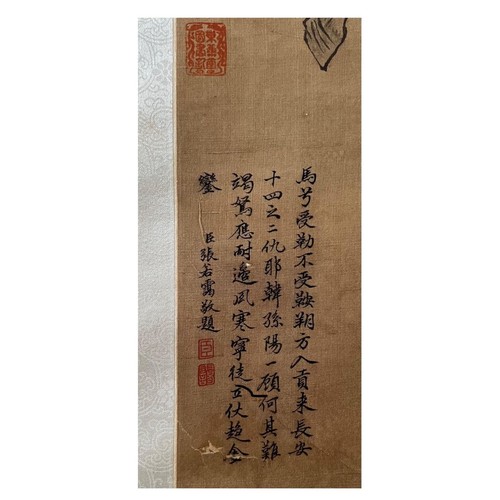 馬兮受勒不受鞍朔方入貢来長安
十四之二仇耶韓孫陽一顧何其難
竭駑應耐邊風寒寧徒立仗趨金
鑾
臣張若靄敬題